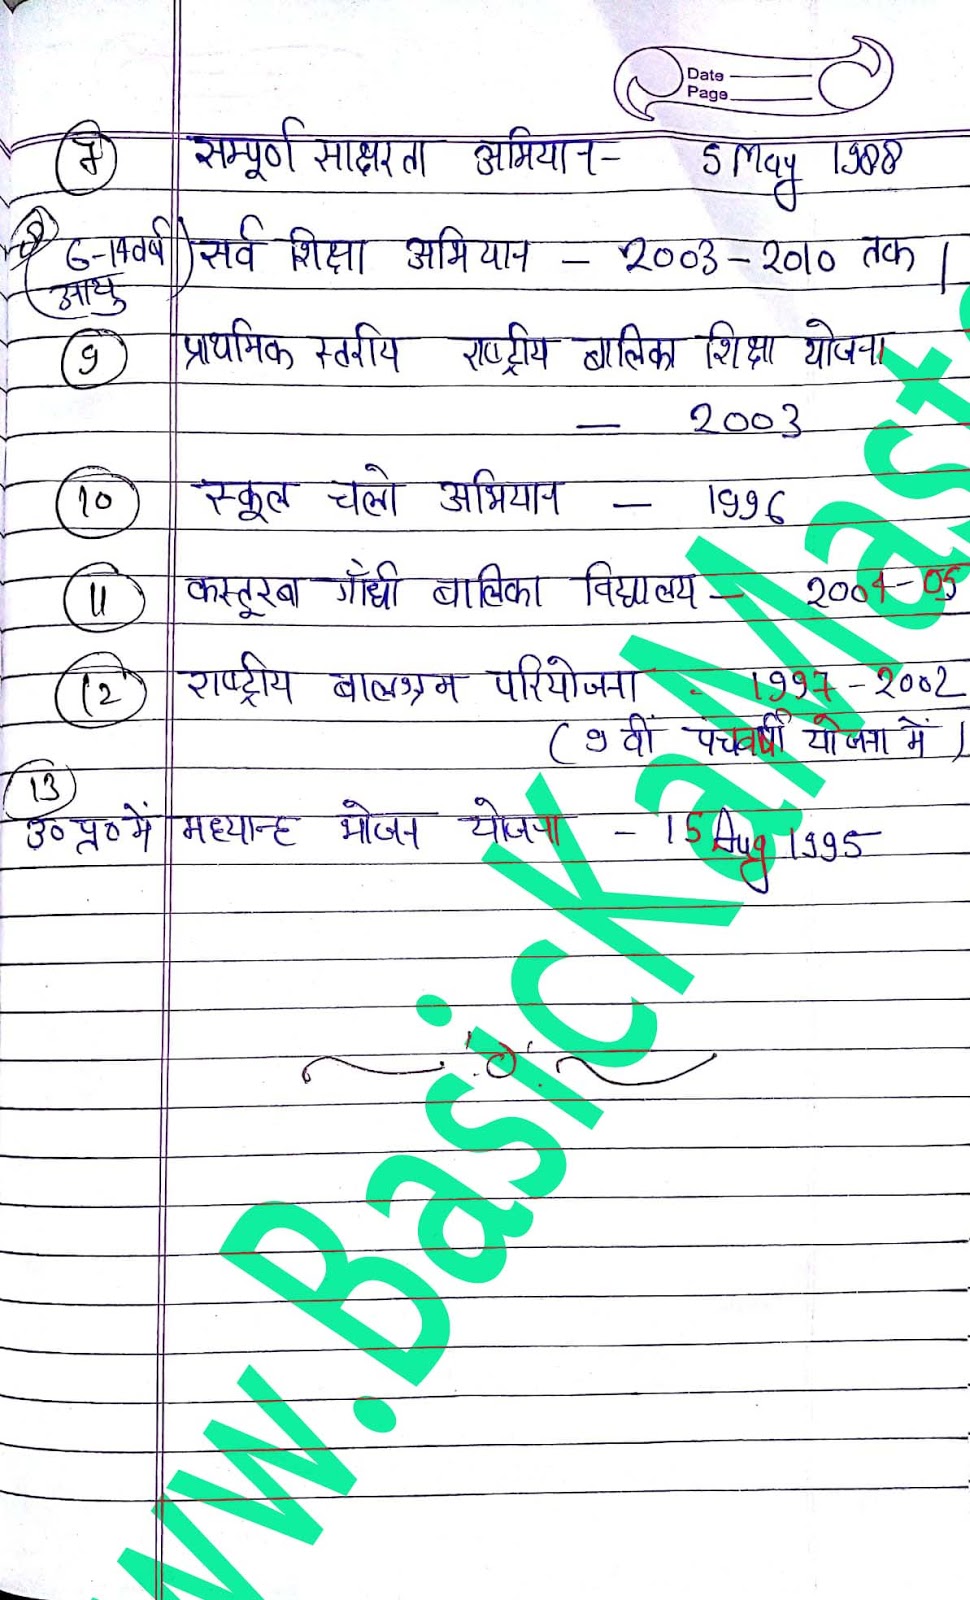 Date
Page
7 सम्पूर्ण साक्षरता अभियान - 5 May 1988
8 6-14 वर्ष आयु सर्व शिक्षा अभियान - 2003-2010 तक |
9 प्राथमिक स्तरीय राष्ट्रीय बालिका शिक्षा योजना
- 2003
10 स्कूल चलो अभियान - 1996
11 कस्तूरबा गाँधी बालिका विद्यालय - 2004-05
12 राष्ट्रीय बालश्रम परियोजना - 1997-2002
(9 वीं पंचवर्षी योजना में)
13
उ० प्र० में मध्यान्ह भोजन योजना - 15 Aug 1995
ww.BasicKaMast